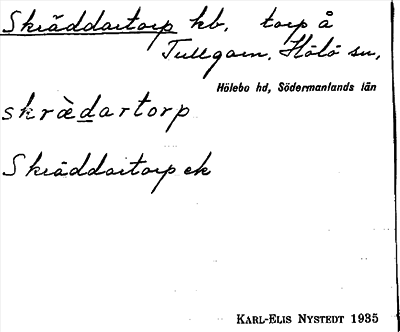 Skräddartorp kb. torp å
Tullgarn, Hölö sn,
Hölebo hd, Södermanlands län
skrὰdartorp
Skräddartorp ek
KARL-ELIS NYSTEDT 1935